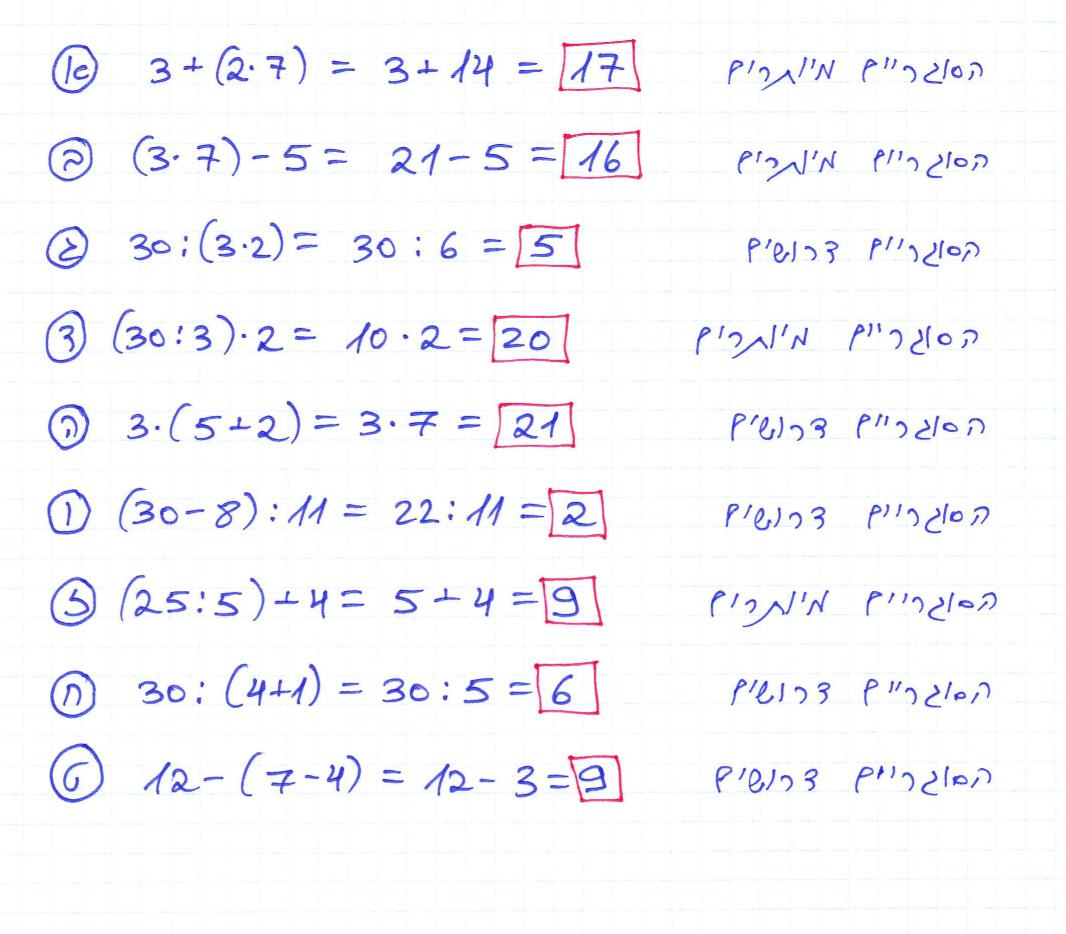 א 3+(2·7) = 3+14 = 17 הסוגריים מיותרים
ב (3·7)-5 = 21-5 = 16 הסוגריים מיותרים
ג 30:(3·2) = 30:6 = 5 הסוגריים דרושים
ד (30:3)·2 = 10·2 = 20 הסוגריים מיותרים
ה 3·(5+2) = 3·7 = 21 הסוגריים דרושים
ו (30-8):11 = 22:11 = 2 הסוגריים דרושים
ז (25:5)+4 = 5+4 = 9 הסוגריים מיותרים
ח 30:(4+1) = 30:5 = 6 הסוגריים דרושים
ט 12-(7-4) = 12-3 = 9 הסוגריים דרושים